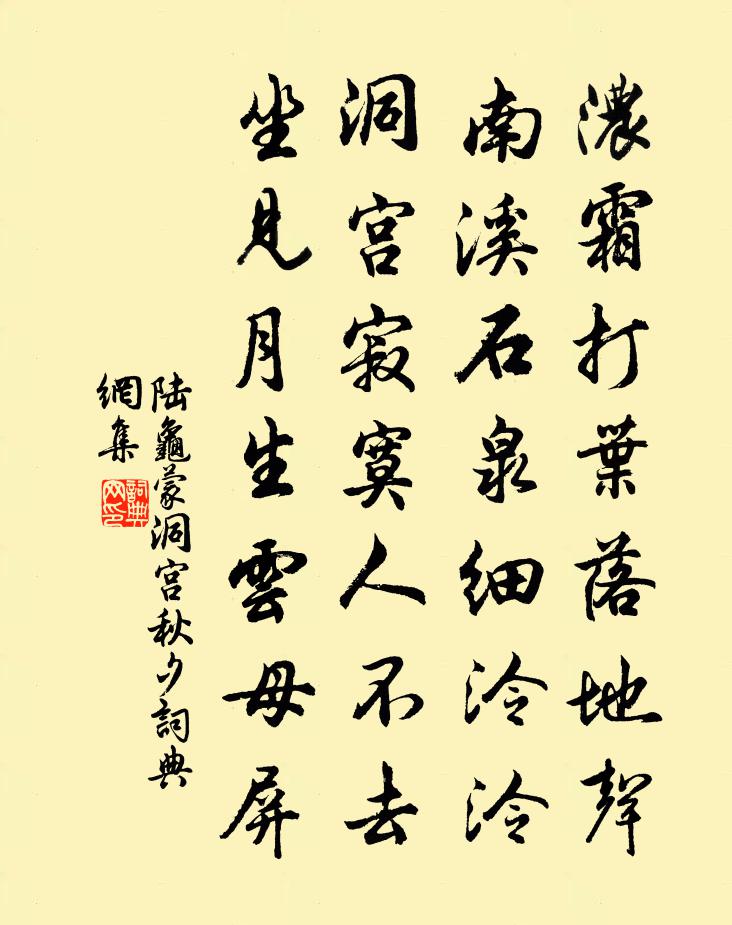 濃霜打葉落地聲
南溪石泉細泠泠
洞宮寂寞人不去
坐見月生雲母屏
陆龜蒙洞宮秋夕詞典
網集
詞典
网印